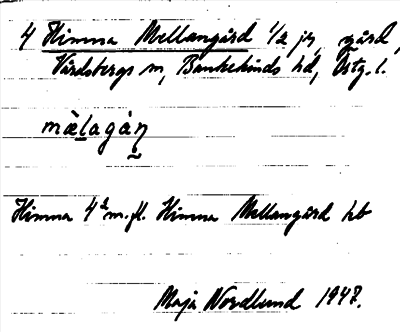 4 Himna Mellangård 1/2 jy, gård,
Vårdsbergs sn, Bankekinds hd, Östg. l.
mè̀lagàṇ
Himna 4² m.fl. Himna Mellangård kb
Maja Nordlund 1947.